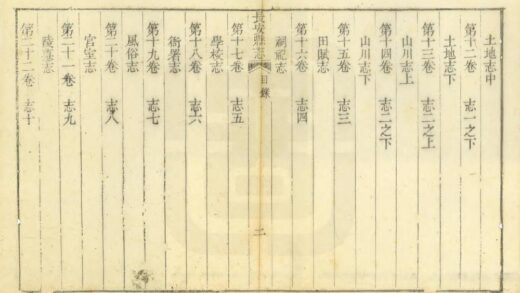 土地志中
第十二卷 志一之下
土地志下
第十三卷 志二之上
山川志上
第十四卷 志二之下
山川志下
第十五卷 志三
田賦志
第十六卷 志四
祠祀志
長安縣志 目錄 二
第十七卷 志五
學校志
第十八卷 志六
衙署志
第十九卷 志七
風俗志
第二十卷 志八
宮室志
第二十一卷 志九
陵墓志
第二十二卷 志十